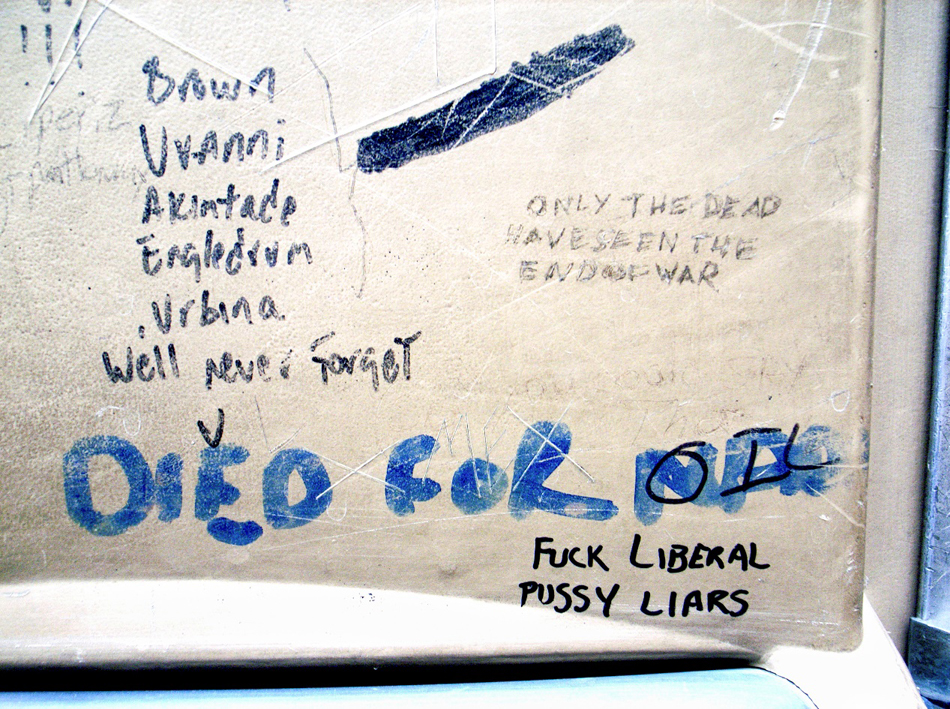 !!!
Brown
Uvanni
Akintade
Engledrum
Urbina
Well never Forget
ONLY THE DEAD
HAVE SEEN THE
END OF WAR
DIED FOR OIL
FUCK LIBERAL
PUSSY LIARS